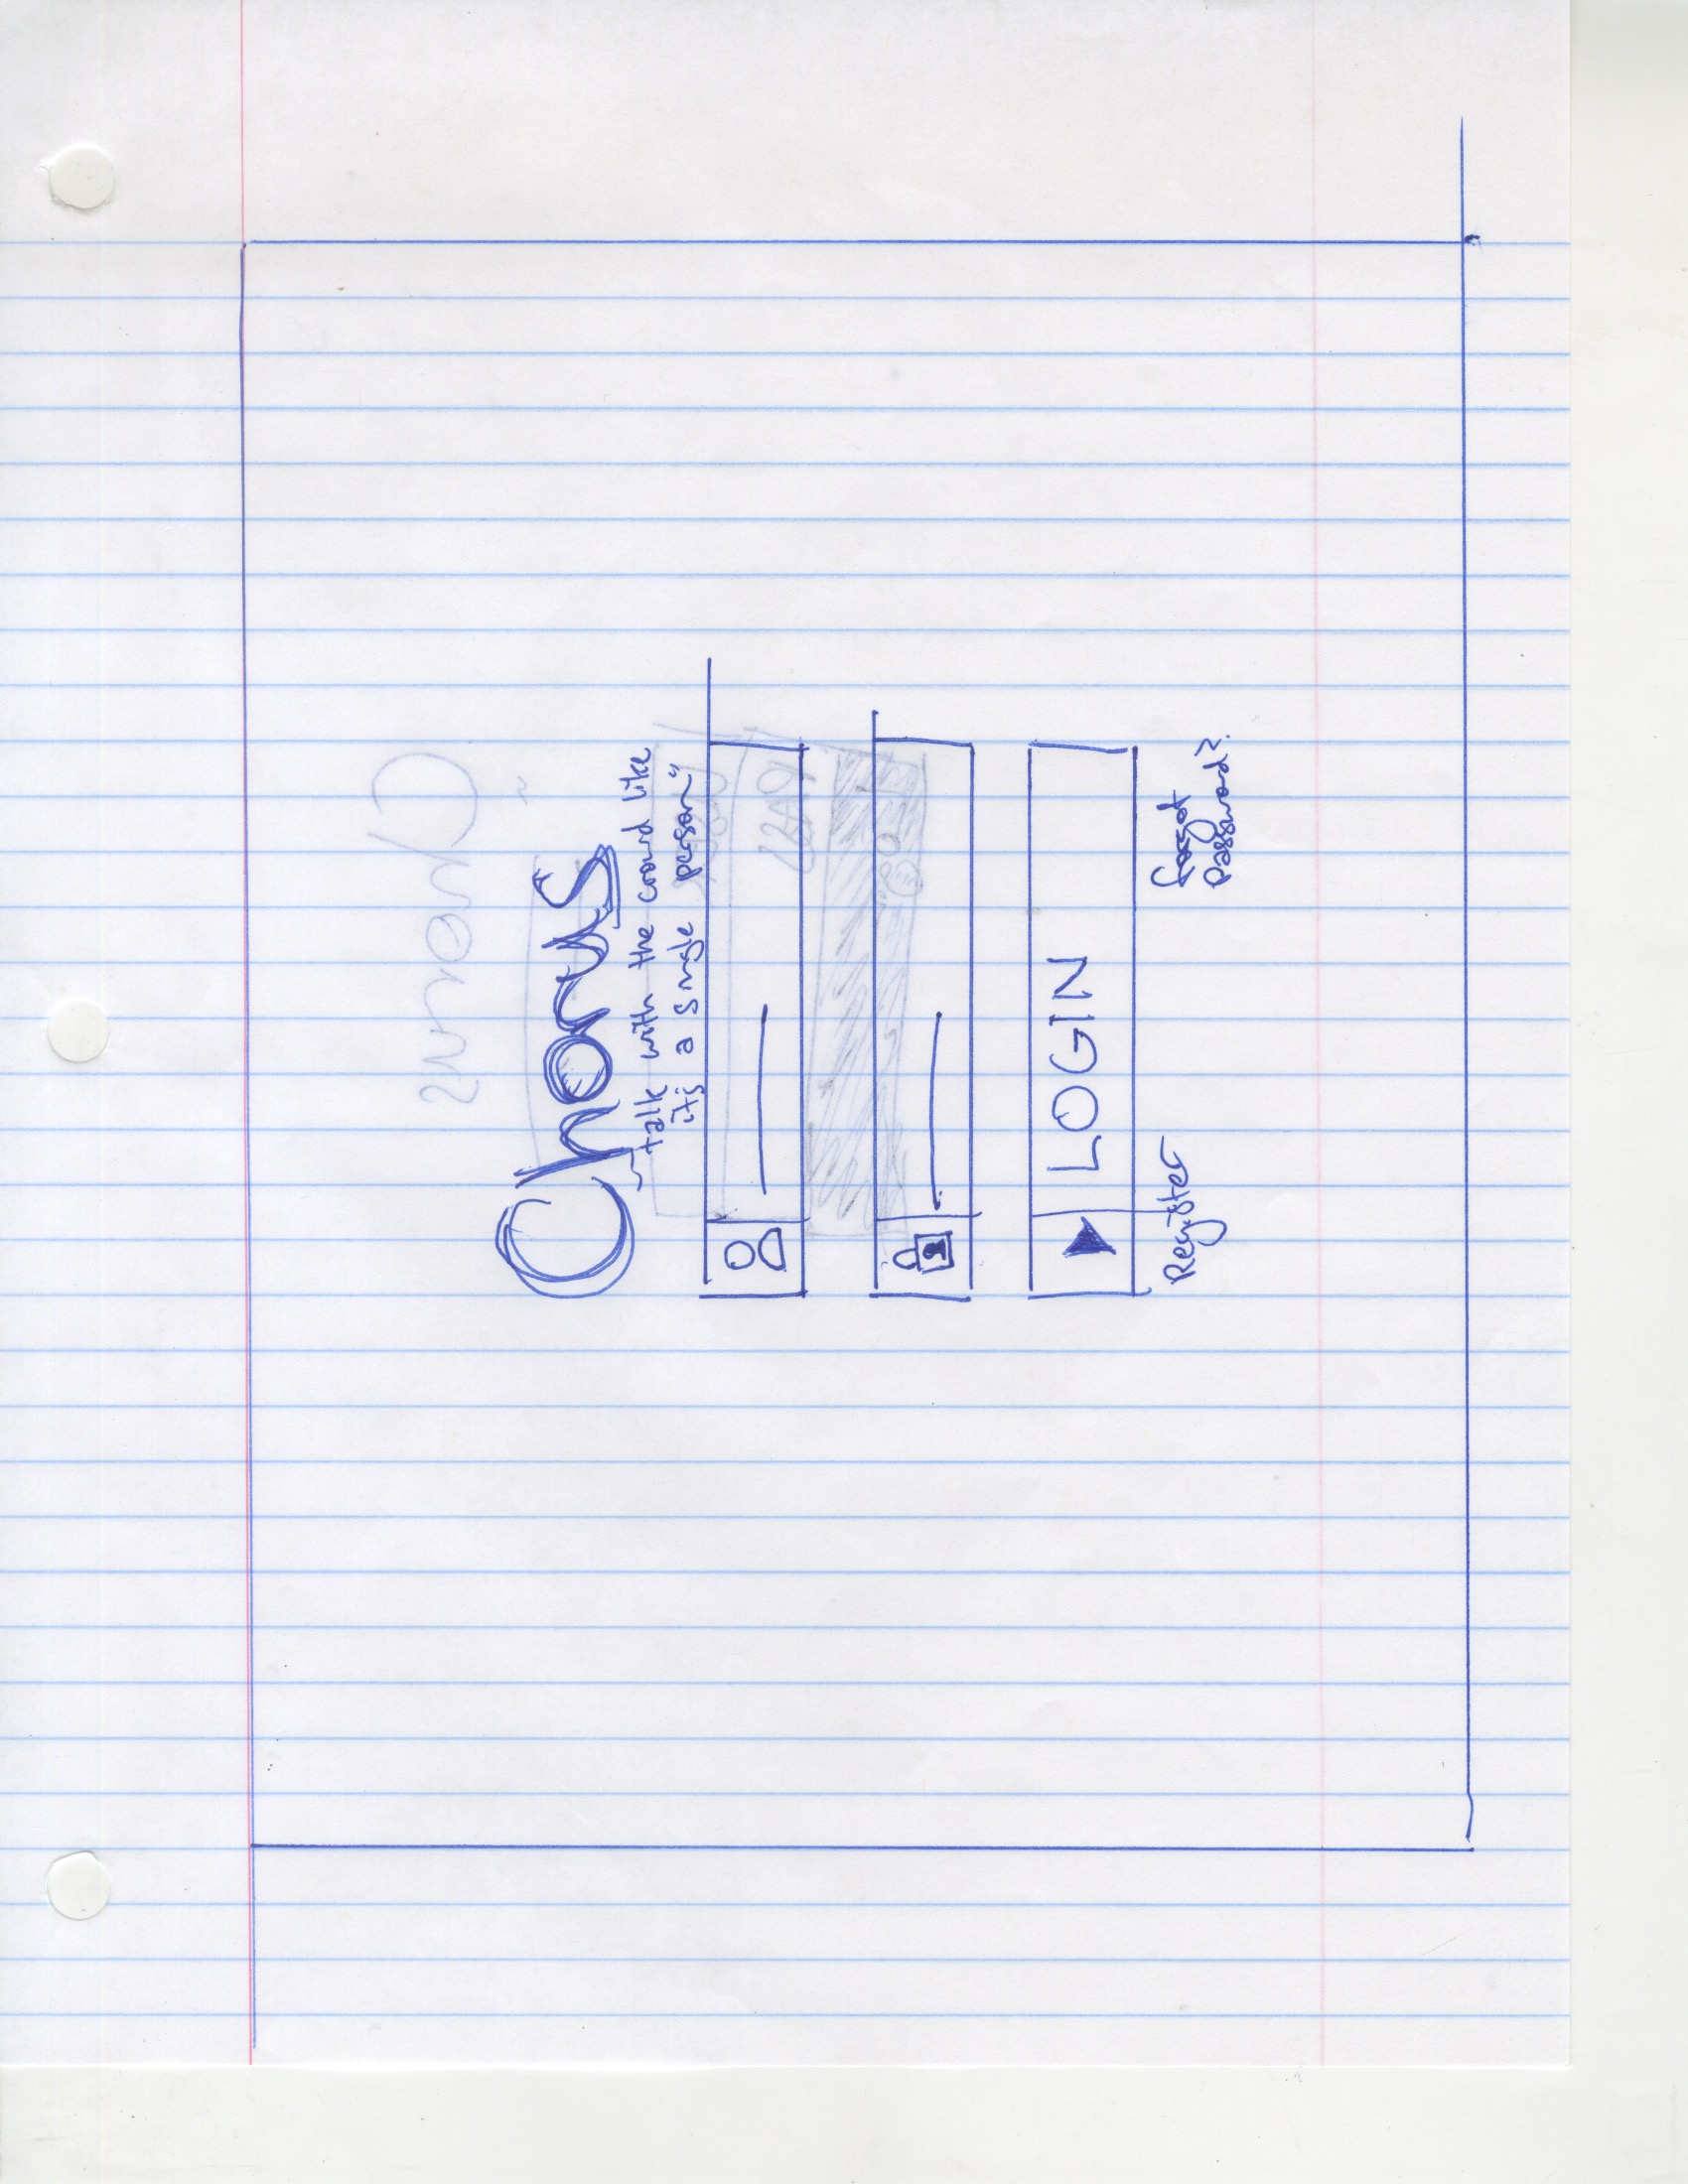 Chorus
~talk with the crowd like
it's a single person"
LOGIN
Register
forgot
Password?
Chorus
USER
PASS